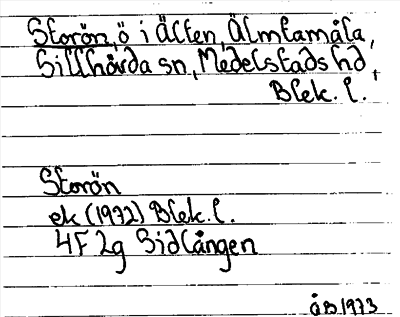 Storön, ö i Älten, Älmtamåla,
Sillhövda sn, Medelstads hd,
Blek. l.
Storön
ek (1972) Blek. l.
4F 2g Sidlången
ÅB 1973